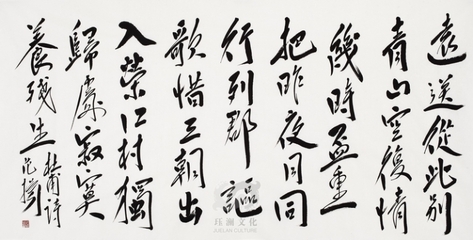 遠送從此別
青山空復情
幾時盃重
把昨夜月同
行列郡謳
歌惜三朝出
入榮江村獨
歸處寂寞
養殘生
杜甫詩
珏澜文化
JUELAN CULTURE